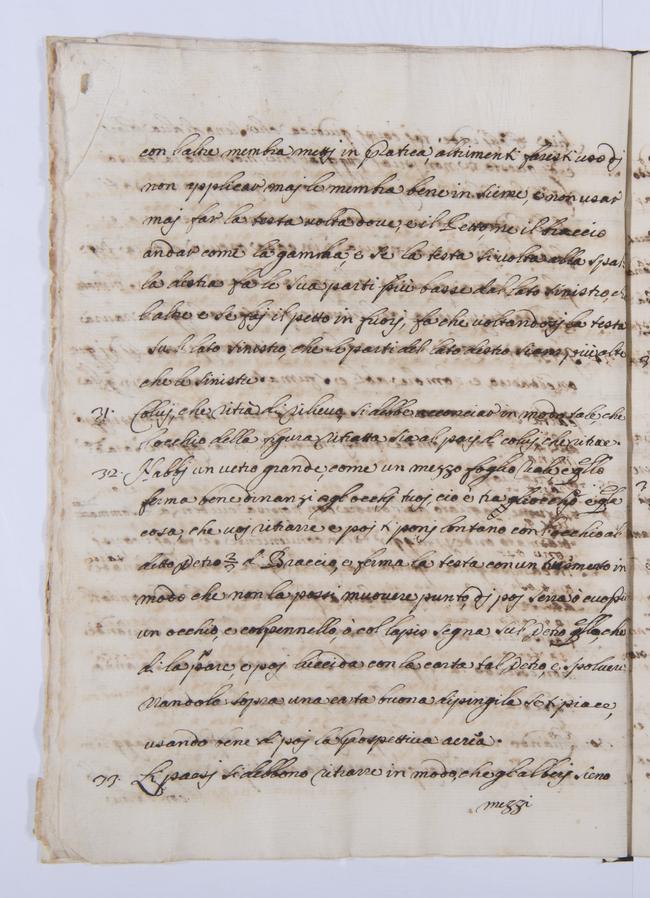 con l'altre membra messj in pratica, altrimenti faresti uso dj
non applicar maj le membra bene in sieme, e non usar
maj far la testa volta dove, e il Petto, ne il braccio
andar come la gamba, e se la testa si volta alla spal
la destra fa le sua parti più basse dal lato sinistro che
l'altre e se faj il petto in fuorj, fa che voltandosj la testa
sul lato sinistro che le parti del lato destro sieno più alte
che le sinistre.
31. Coluj, che ritra di rilievo, si debbe acconciar in modo tale, che
l'occhio della figura ritratta sia al parj di coluj, che ritrae.
32. Habbj un vetro grande, come un mezzo foglio reale, e quello
ferma bene dinanzi agl'occhj tuoj, cio è tra gl'occhj e quella
cosa, che voj ritrarre e poj ti ponj lontano con l'occhio al
detto vetro 2/3 di Braccio, e ferma la testa con un in
modo che non la possi muovere punto, dj poj serra o cuoprj
un occhio, e col pennello, o col lapis segna sul vetro quello che
di la pare, e poj lucida con la carta tal vetro, e spolveri
zandola sopra una carta buona dipingila se ti piace,
usando bene di poj la prospettiva aeria.
33. Li paesj si debbono ritrarre in modo, che gl'alberj sieno
mezzi